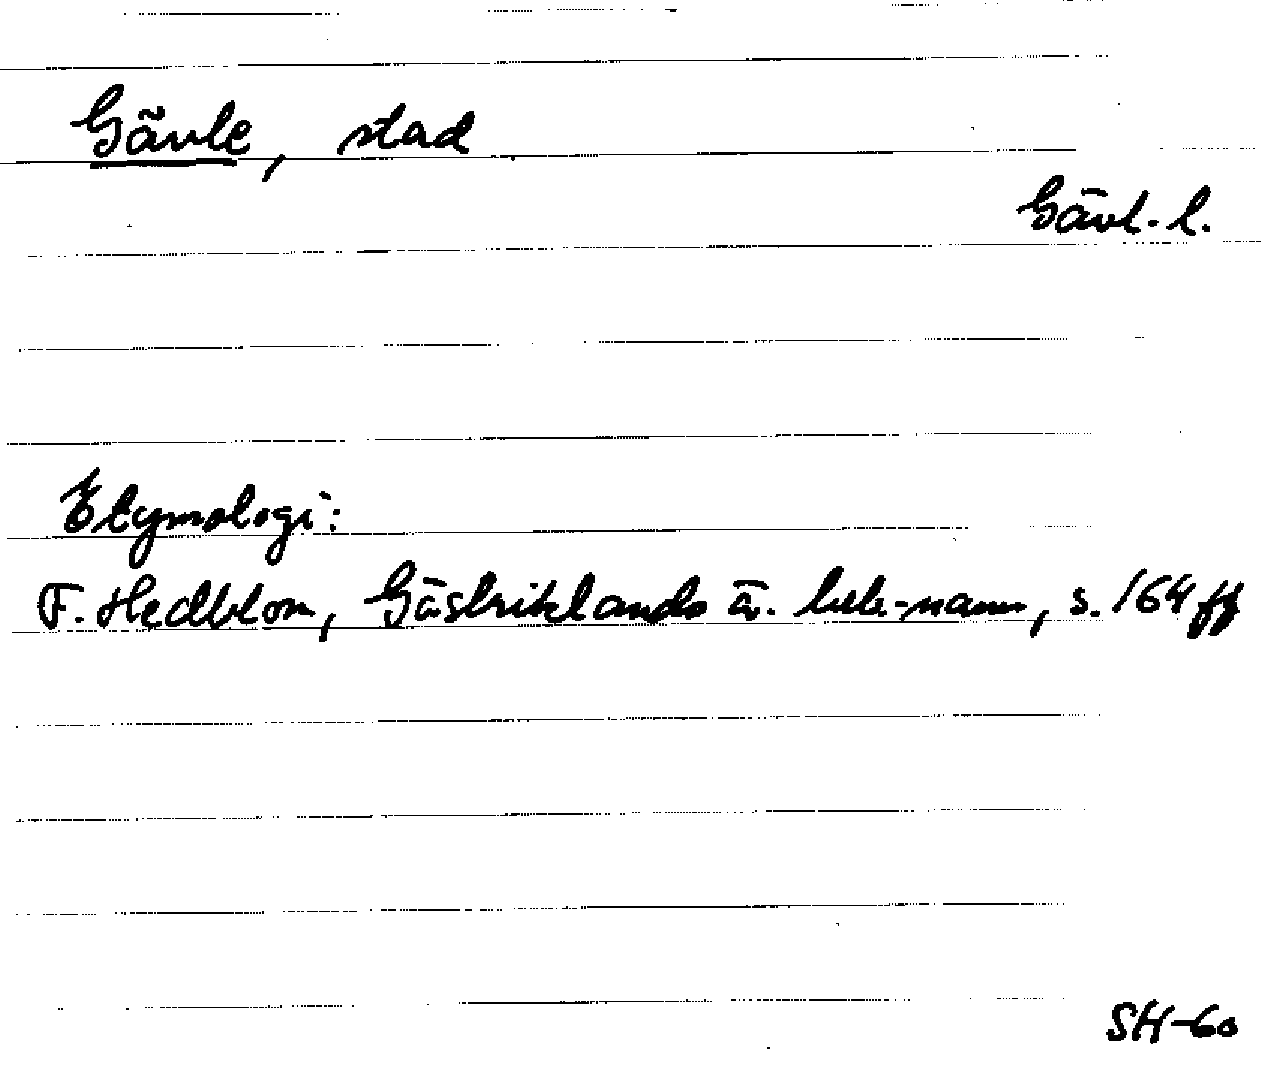 Gävle, stad
Gävl. l.
Etymologi:
F. Hedblom, Gästriklands ä. beb-namn, s. 164 ff
SH-60